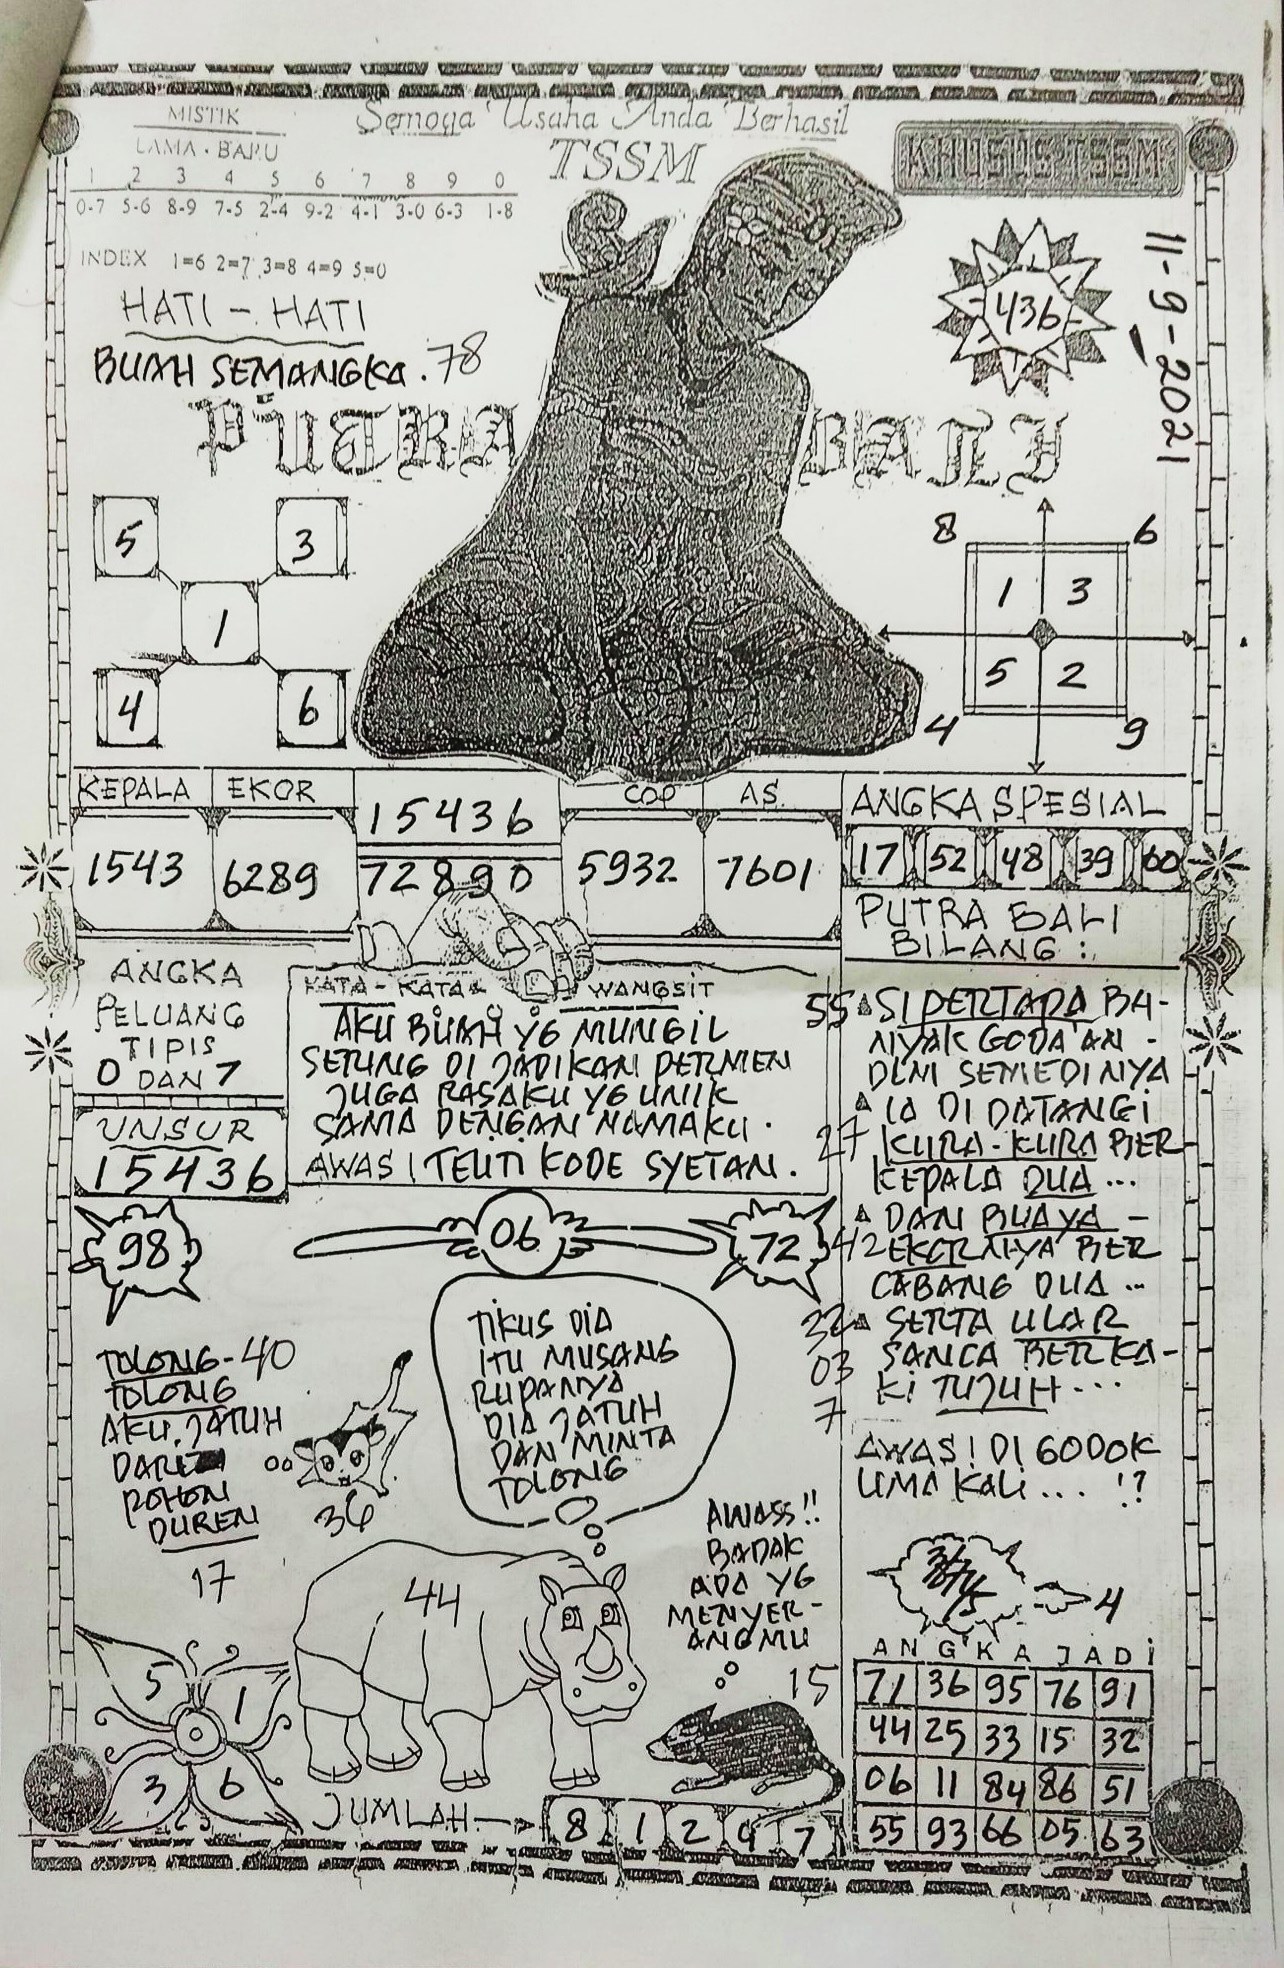 MISTIK
LAMA · BARU
1 2 3 4 5 6 7 8 9 0
0-7 5-6 8-9 7-5 2-4 9-2 4-1 3-0 6-3 1-8
INDEX 1=6 2=7 3=8 4=9 5=0
Semoga Usaha Anda Berhasil
TSSM
KHUSUS TSSM
11-9-2021
436
HATI - HATI
BUAH SEMANGKA. 78
PUTRA BALI
5 3
1
4 6
8 6
1 3
5 2
4 9
KEPALA EKOR
1543 6289
15436
72890
COP AS
5932 7601
ANGKA SPESIAL
17 52 48 39 60
ANGKA
PELUANG
TIPIS
0 DAN 7
UNSUR
15436
KATA - KATA WANGSIT
AKU BUAH YG MUNGIL
SERING DI JADIKAN PERMEN
JUGA RASAKU YG UNIK
SAMA DENGAN NAMAKU.
AWAS! TELITI KODE SYETAN.
PUTRA BALI
BILANG :
55 SI PERTAPA BA-
NYAK GODA'AN -
DEMI SEMEDINYA
IA DI DATANGI
27 KURA-KURA BER
KEPALA DUA ...
DAN BUAYA -
42 EKORNYA BER
CABANG DUA ...
32 SERTA ULAR
03 SANCA BERKA-
7 KI TUJUH ...
AWAS! DI GODOK
LIMA KALI ... !?
98
06
72
TOLONG - 40
TOLONG
AKU JATUH
DARI
POHON
DUREN
17
36
TIKUS DIA
ITU MUSANG
RUPANYA
DIA JATUH
DAN MINTA
TOLONG
44
AWASS!!
BADAK
ADA YG
MENYER-
ANGMU
15
4
5 1
3 6
JUMLAH
8 1 2 4 7
ANGKA JADI
71 36 95 76 91
44 25 33 15 32
06 11 84 86 51
55 93 66 05 63